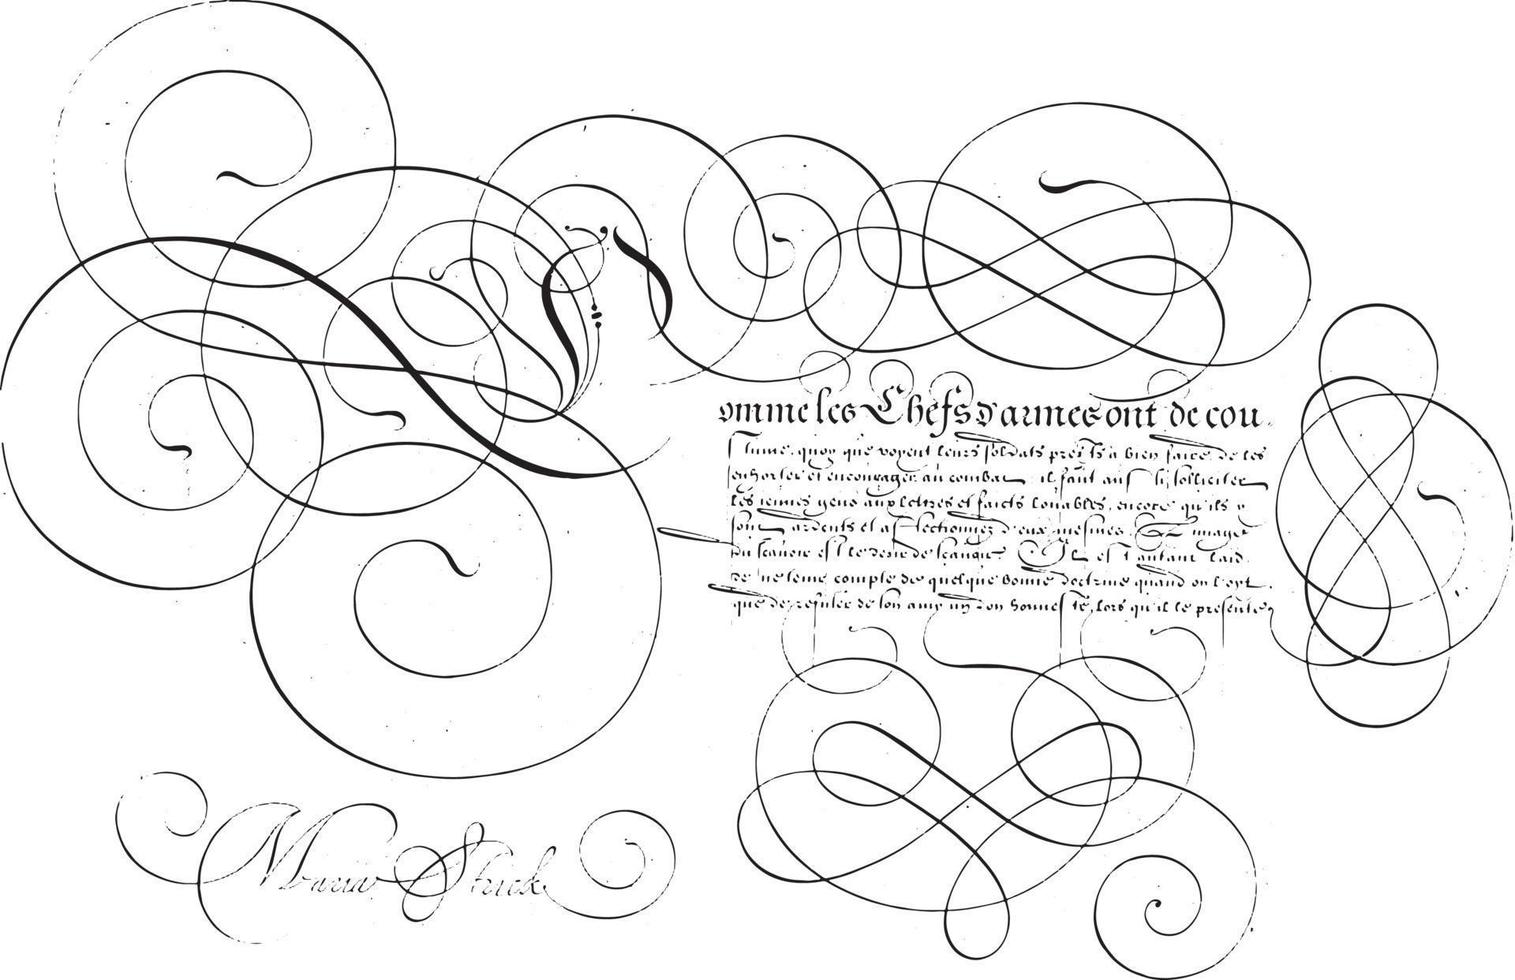 omme les Chefs d'armes ont de cou
stume, quoy que voyent leurs soldats prests à bien faire, de les
enhorter et encourager au combat, il faut aussi solliciter
les ieunes gens aux lettres et faicts louables, encore qu'ils y
sont ardents et affectionnez d'eux mesmes. Et image
du scauoir est le desir de scauoir. Il est autant laid
de ne tenir compte de quelque bonne doctrine quand on l'oyt,
que de refuser de son amy un don honneste, lors qu'il le presente
Maria Strick